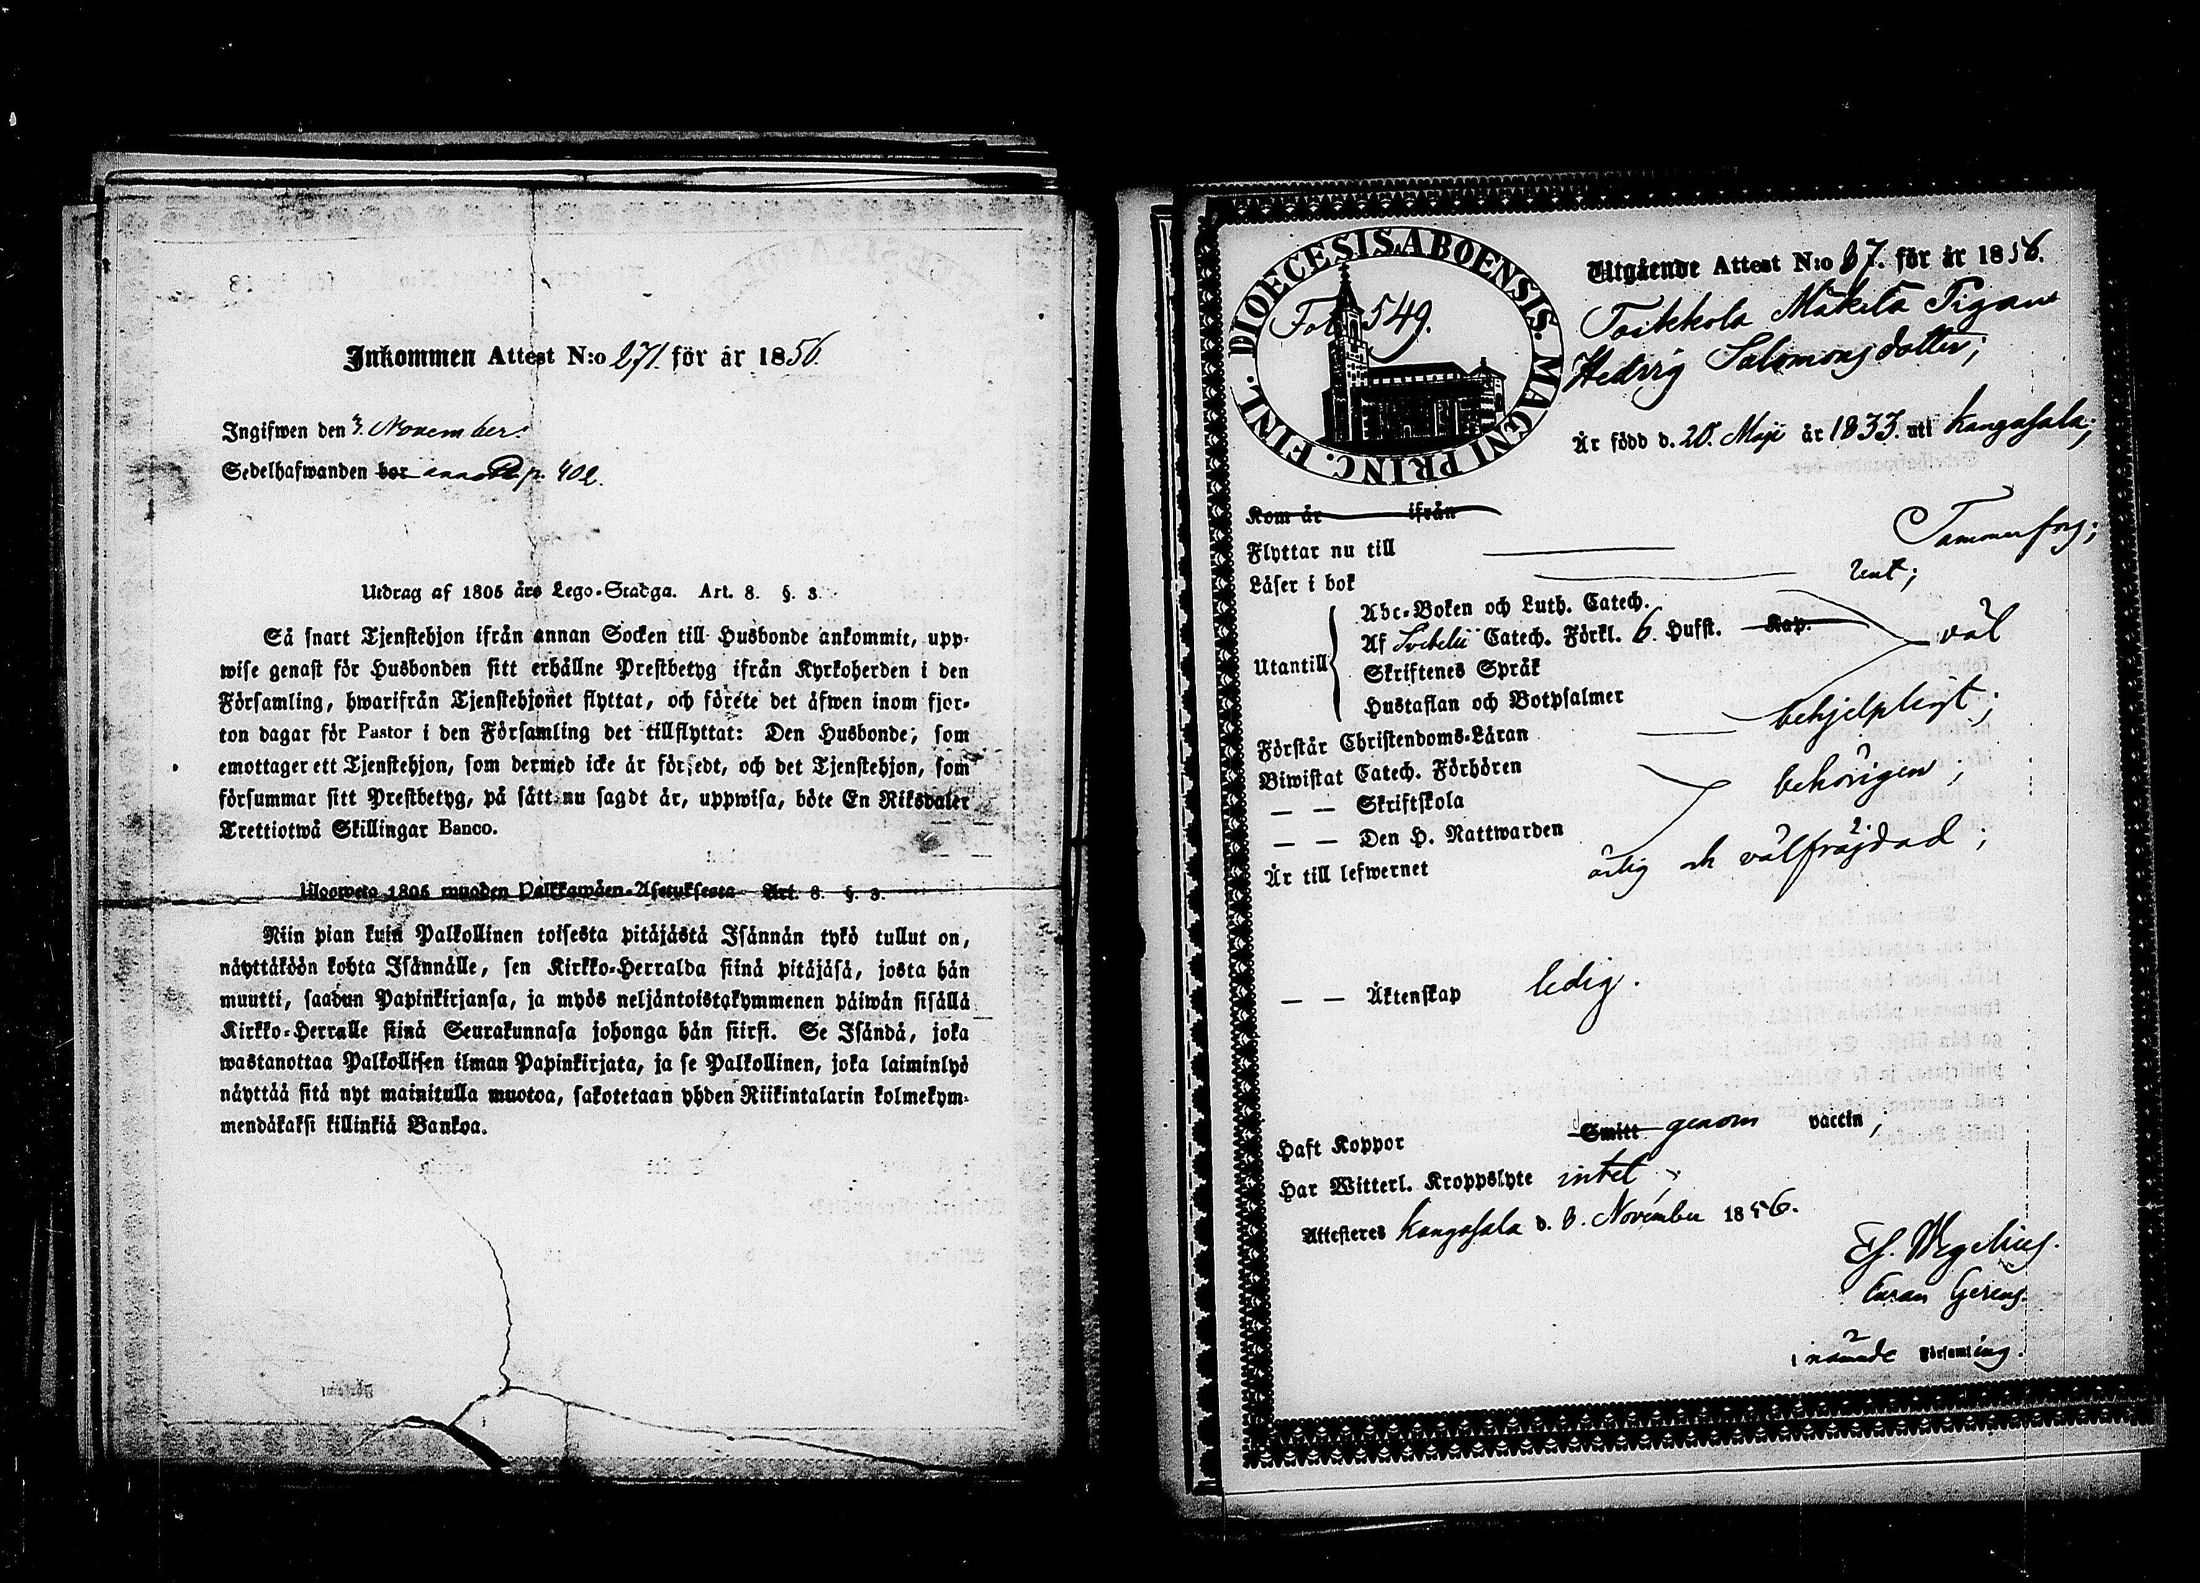 Inkommen Attest N:o 271. för år 1856.
Ingifwen den 3. November.
Sedelhafwanden bor p. 402.
Utdrag af 1805 års Lego-Stadga. Art. 8. §. 3.
Så snart Tjenstehjon ifrån annan Socken till Husbonde ankommit, upp-
wise genast för Husbonden sitt erhållne Prestbetyg ifrån Kyrkoherden i den
Församling, hwarifrån Tjenstehjonet flyttat, och förete det äfwen inom fjor-
ton dagar för Pastor i den Församling det tillflyttat: Den Husbonde, som
emottager ett Tjenstehjon, som dermed icke är försedt, och det Tjenstehjon, som
försummar sitt Prestbetyg, på sätt nu sagdt är, uppwisa, böte En Riksdaler
Trettiotwå Skillingar Banco.
Ulosweto 1805 wuoden Palkkawäen-Asetuksesta Art. 8. §. 3.
Niin pian kuin Palkollinen toisesta pitäjästä Isännän tykö tullut on,
näyttäköön kohta Isännälle, sen Kirkko-Herralda siinä pitäjäsä, josta hän
muutti, saadun Papinkirjansa, ja myös neljäntoistakymmenen päiwän sisällä
Kirkko-Herralle siinä Seurakunnasa johonga hän siirsi. Se Isändä, joka
wastanottaa Palkollisen ilman Papinkirjata, ja se Palkollinen, joka laiminlyö
näyttää sitä nyt mainitulla muotoa, sakotetaan yhden Riikintalarin kolmekym-
mendäkaksi killinkiä Bankoa.
DIOECESIS ABOENSIS. MAGNI PRINC. FINL.
Fol 549.
Utgående Attest N:o 67. för år 1856.
Toikkola Mäkelä Pigan
Hedvig Salomonsdotter;
Är född d. 20. Maji år 1833. uti Kangasala;
Kom år ifrån
Flyttar nu till Tammerfors;
Läser i bok rent;
Utantill
Abc-Boken och Luth. Catech.
Af Svebelii Catech. Förkl. 6. Hufst. Kap. väl
Skriftenes Språk
Hustaflan och Botpsalmer
Förstår Christendoms-Läran behjelpligt;
Biwistat Catech. Förhören
— — Skriftskola behörigen;
— — Den H. Nattwarden
Är till lefwernet ärlig och välfräjdad;
— — Äktenskap ledig.
Haft Koppor Smitt genom vaccin;
Har Witterl. Kroppslyte intet
Attesteres Kangasala d. 3. November 1856.
Ef. Wegelius.
Curam Gerens.
i nämnde Församling.